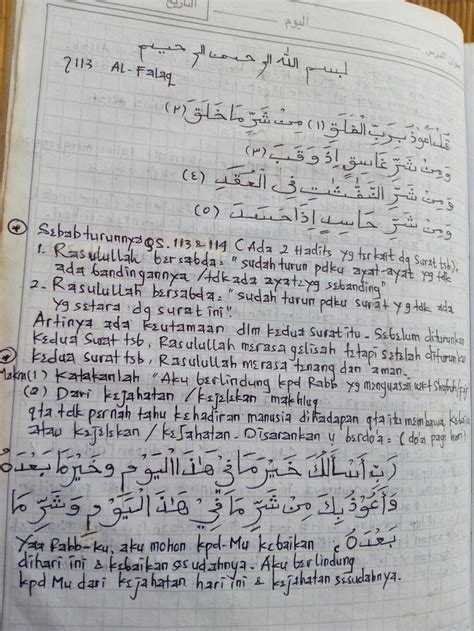 اليوم
التاريخ
بسم الله الرحمن الرحيم
113 AL-Falaq
قُلْ أَعُوْذُ بِرَبِّ الْفَلَقِ (١) مِنْ شَرِّ مَا خَلَقَ (٢)
وَمِنْ شَرِّ غَاسِقٍ إِذَا وَقَبَ (٣)
وَمِنْ شَرِّ النَّفّٰثٰتِ فِى الْعُقَدِ (٤)
وَمِنْ شَرِّ حَاسِدٍ إِذَا حَسَدَ (٥)
Sebab turunnya QS. 113 & 114 (Ada 2 Hadits yg terkait dg surat tsb).
1. Rasulullah bersabda: "sudah turun pdku ayat-ayat yg tdk
ada bandingannya /tdk ada ayat2 yg sebanding"
2. Rasulullah bersabda: "sudah turun pdku surat yg tdk ada
yg setara dg surat ini".
Artinya ada keutamaan dlm kedua surat itu - Sebelum diturunkan
kedua surat tsb, Rasulullah merasa gelisah tetapi setelah diturunkan
kedua surat tsb, Rasulullah merasa tenang dan aman.
Makna (1) Katakanlah "Aku berlindung kpd Rabb yg menguasai wkt Shubuh/fajr
(2) Dari kejahatan /kejelekan makhluq
qta tdk pernah tahu kehadiran manusia dihadapan qta itu membawa
atau kejelekan /kejahatan. Disarankan u berdo'a : (do'a pagi hari)
رَبِّ أَسْأَلُكَ خَيْرَ مَا فِيْ هٰذَا الْيَوْمِ وَخَيْرَ مَا بَعْدَهُ
وَأَعُوْذُ بِكَ مِنْ شَرِّ مَا فِيْ هٰذَا الْيَوْمِ وَشَرِّ مَا
بَعْدَهُ
Yaa Rabb-ku, aku mohon kpd-Mu kebaikan
dihari ini & kebaikan sesudahnya. Aku berlindung
kpd Mu dari kejahatan hari ini & kejahatan sesudahnya.